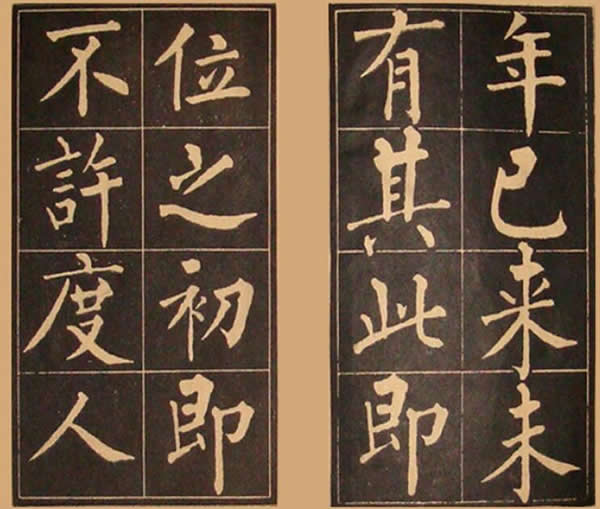 年已来未
有其此即
位之初即
不許度人